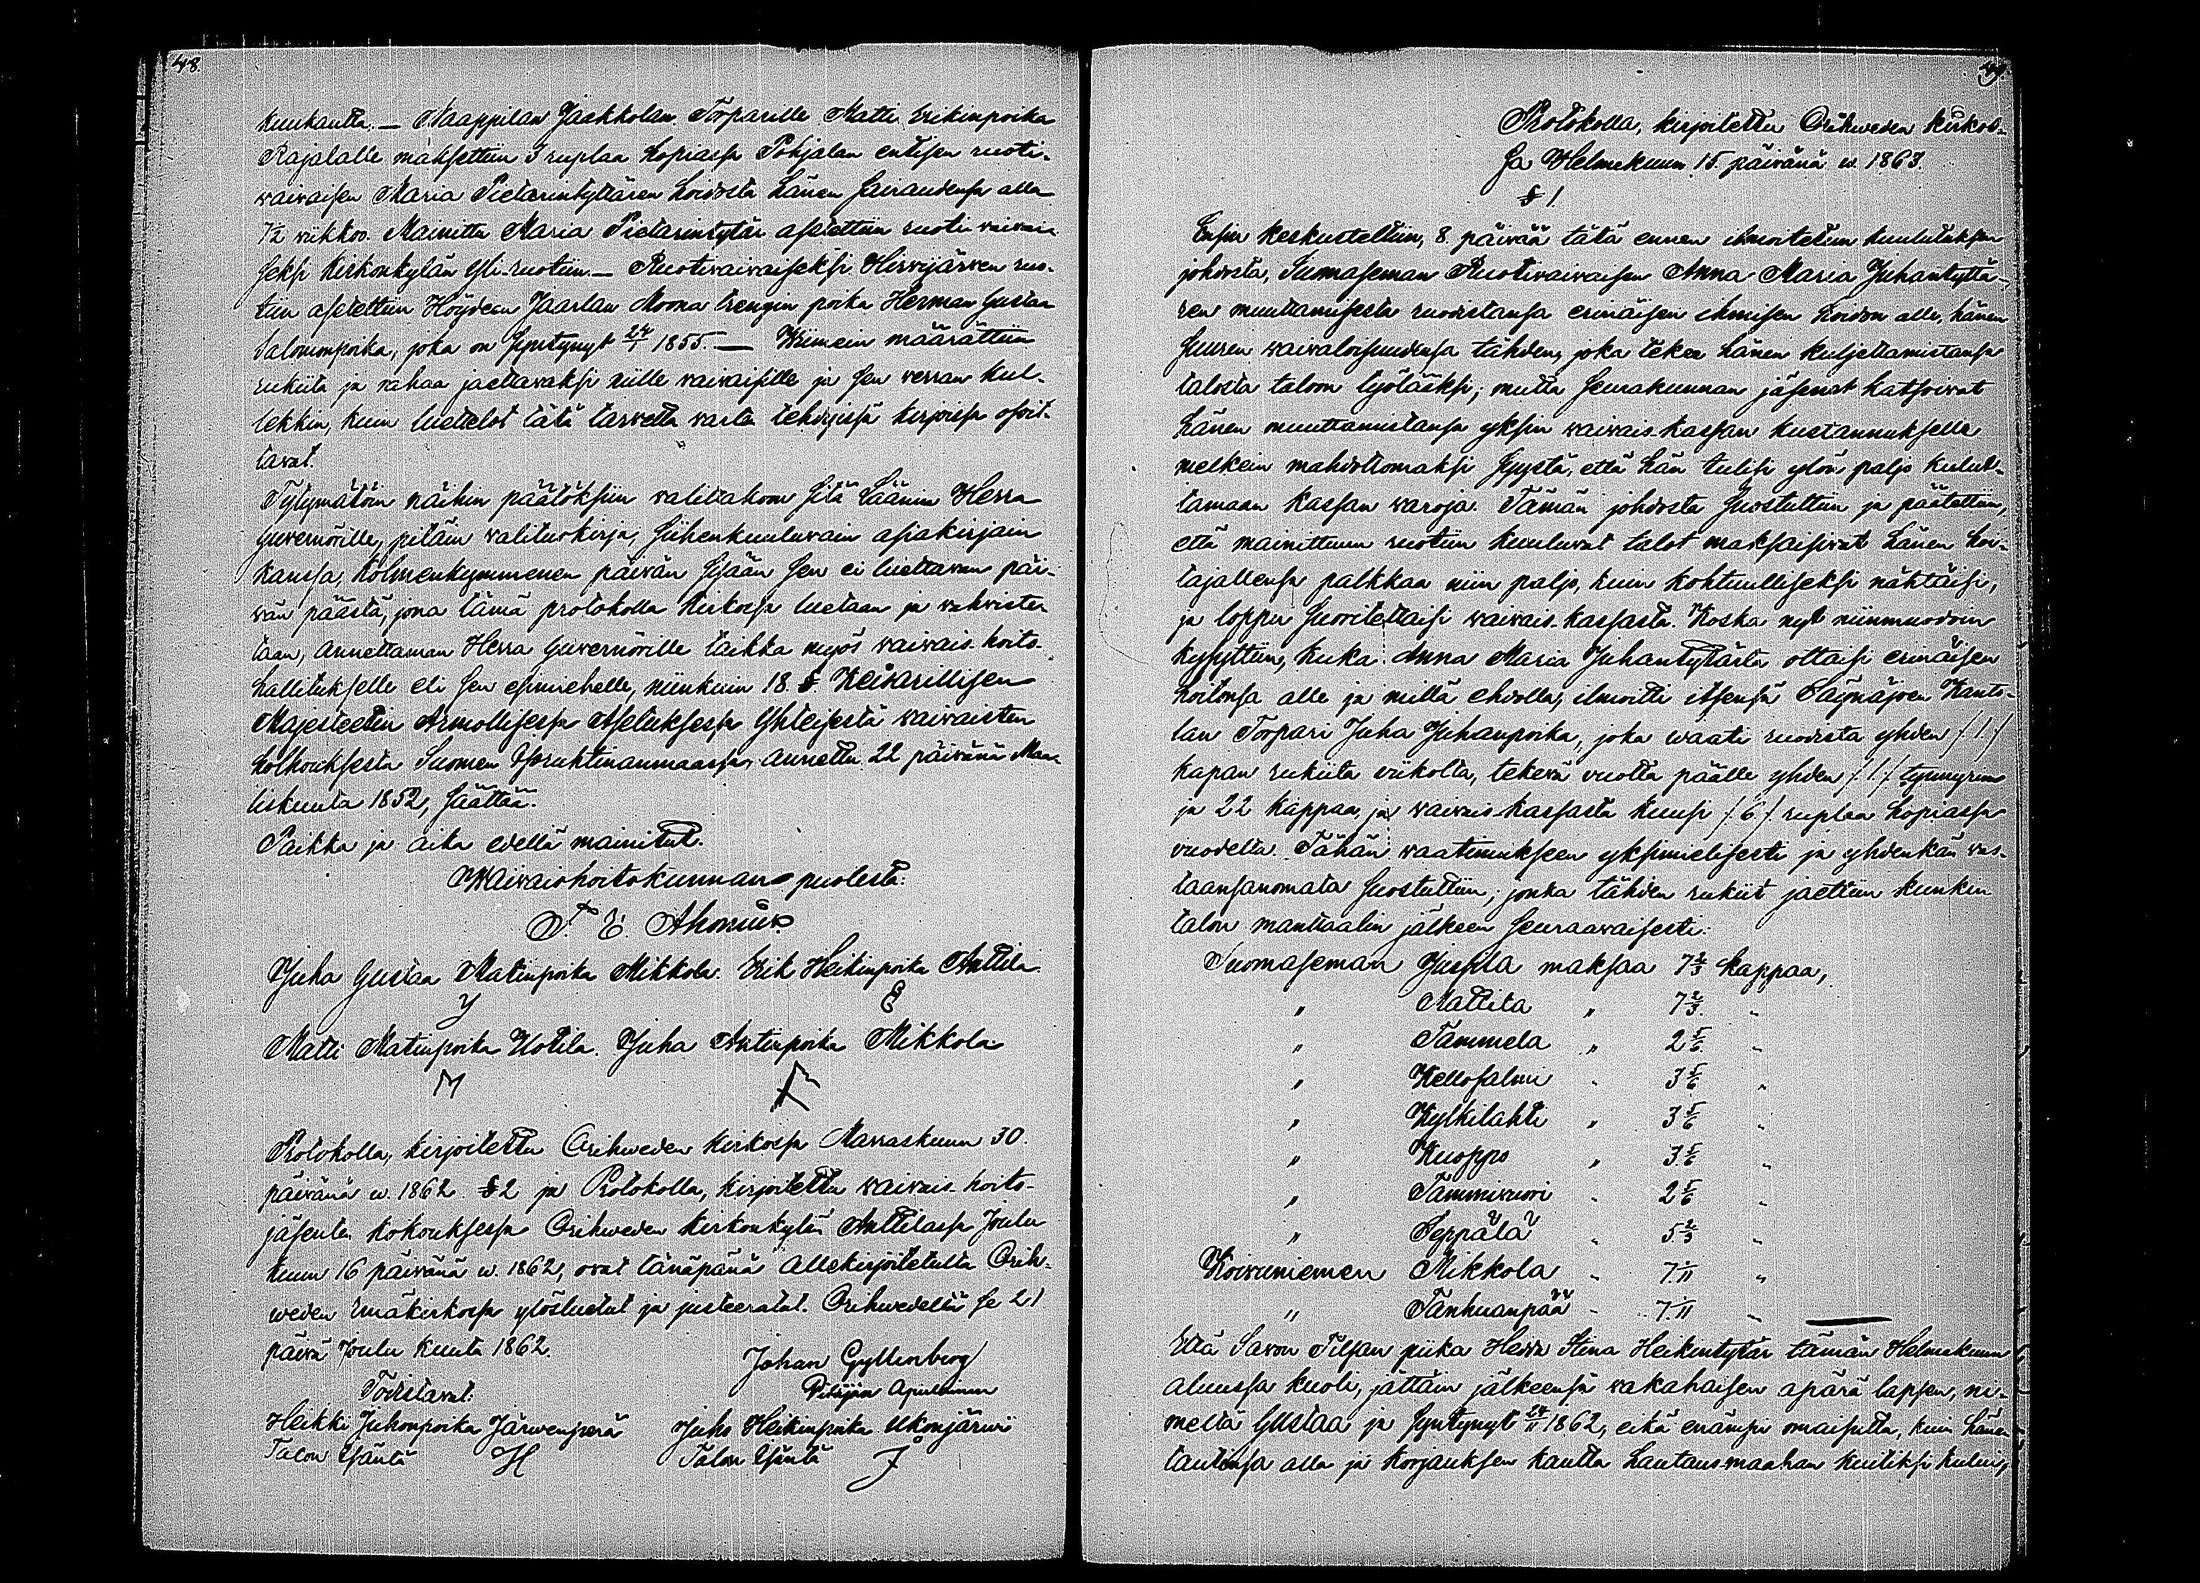 48.
kuukautta. — Naappilan Jaakkolan Torparille Matti Erikinpoika
Rajalalle maksettiin 3 ruplaa hopiassa Pohjalan entisen ruoti-
waiwaisen Maria Pietarintyttären hoidosta hänen sairaudensa alla
7½ wiikkoo. Mainittu Maria Pietarintytär asetettiin ruoti waiwai-
seksi Kirkonkylän Yli-ruotiin. — Ruotiwaiwaiseksi Hirwijärwen ruo-
tiin asetettiin Höydeen Jaarlan Moona trengin poika Herman Gustaa
Salomonpoika, joka on syntynyt 24/1 1855. — Wiimein määrättiin
rukiita ja rahaa jaettawaksi niille waiwaisille ja sen werran kul-
lekkin, kuin luettelot tätä tarwetta warten tehdyissä kirjoissa osoit-
tawat.
Tytymätöin näihin päätöksiin walittakoon siitä Läänin Herra
Guvernörille, pitäin walituskirja, siihenkuuluwain asiakirjain
kanssa, kolmenkymmenen päiwän sisään sen ei luettawan päi-
wän päästä, jona tämä protokolla kirkossa luetaan ja wahwiste-
taan, annettaman Herra Guvernörille taikka myös waiwais-hoito-
hallitukselle eli sen esimiehelle, niinkuin 18. §. Keisarillisen
Majesteetin Armollisessa Asetuksessa Yhteisestä waiwaisten
holhouksesta Suomen Isoruhtinanmaassa, annettu 22 päiwänä Maa-
liskuuta 1852, säättää.
Paikka ja aika edellä mainitut.
Waiwaishoitokunnan puolesta:
F. E. Ahonius
Juha Gustaa Matinpoika Mikkola. Erik Heikinpoika Anttila.
J E
Matti Matinpoika Uotila. Juha Antinpoika Mikkola
M
Protokolla, kirjoitettu Orihweden kirkossa Marraskuun 30.
päiwänä w. 1862. § 2 ja Protokolla, kirjoitettu waiwais-hoito-
jäsenten kokouksessa Orihweden kirkonkylän Anttilassa Joulu
kuun 16 päiwänä w. 1862, owat tänäpänä allekirjoitetulta Orih-
weden Emäkirkossa ylösluetut ja justeeratut. Orihwedellä se 21
päiwä Joulu kuuta 1862.
Johan Gyllenberg
Pitäjän Apulainen
Todistawat:
Heikki Juhonpoika Järwenperä Juho Heikinpoika Ukonjärwi
Talon Isäntä H Talon Isäntä J
49
Protokolla, kirjoitettu Orihweden kirkos-
sa Helmekuun 15 päiwänä w. 1863.
§ 1.
Ensin keskusteltiin, 8. päiwää tätä ennen ilmoitetun kuulutuksen
johdosta, Suomaseman Ruotiwaiwaisen Anna Maria Juhantyttä-
ren muuttamisesta ruodistansa erinäisen ihmisen hoidon alle, hänen
suuren waiwaloisuudensa tähden, joka tekee hänen kuljettamistansa
talosta taloon työlääksi; mutta seurakunnan jäsenet katsoiwat
hänen muuttamistansa yksin waiwais-kassan kustannukselle
melkein mahdottomaksi syystä, että hän tulisi ylön paljo kulut-
tamaan kassan waroja. Tämän johdosta suostuttiin ja päätettiin,
että mainittuun ruotiin kuuluwat talot maksaisiwat hänen hoi-
tajallensa palkkaa niin paljo, kuin kohtuulliseksi nähtäisi,
ja loppu suoritettaisi waiwais-kassasta. Koska nyt niinmuodoin
kysyttiin, kuka Anna Maria Juhantytärtä ottaisi erinäisen
hoitonsa alle ja millä ehdolla, ilmoitti itsensä Säynäjoen Kanto-
lan Torpari Juha Juhanpoika, joka waati ruodista yhden /:1:/
kapan rukiita wiikolta, tekewä wuotta päälle yhden /:1:/ tynnyrin
ja 22 kappaa, ja waiwais-kassasta kuusi /:6:/ ruplaa hopiassa
wuodelta. Tähän waatimukseen yksimielisesti ja yhdenkän was-
taansanomata suostuttiin; jonka tähden rukiit jaettiin kunkin
talon manttaalin jälkeen seuraawaisesti:
Suomaseman Jussila maksaa 7 2/3 kappaa,
" Mattila " 7 2/3 "
" Tammela " 2 5/6 "
" Kellosalmi " 3 5/6 "
" Kylkilahti " 3 5/6 "
" Kuoppo " 3 5/6 "
" Tammiwuori " 2 5/6 "
" Seppälä " 5 2/3 "
Koiwuniemen Mikkola " 7 1/11 "
" Tanhuanpää " 7 1/11 "
Että Sawon Tilsan piika Hedda Stina Heikintytär tämän Helmekuun
alussa kuoli, jättäin jälkeensä wakahaisen äpärä lapsen, ni-
meltä Gustaa ja syntynyt 24/11 1862, eikä enämpi omaisutta, kuin hänen
tautinsa alla ja korjauksen kautta hautausmaahan kuitiksi kului,